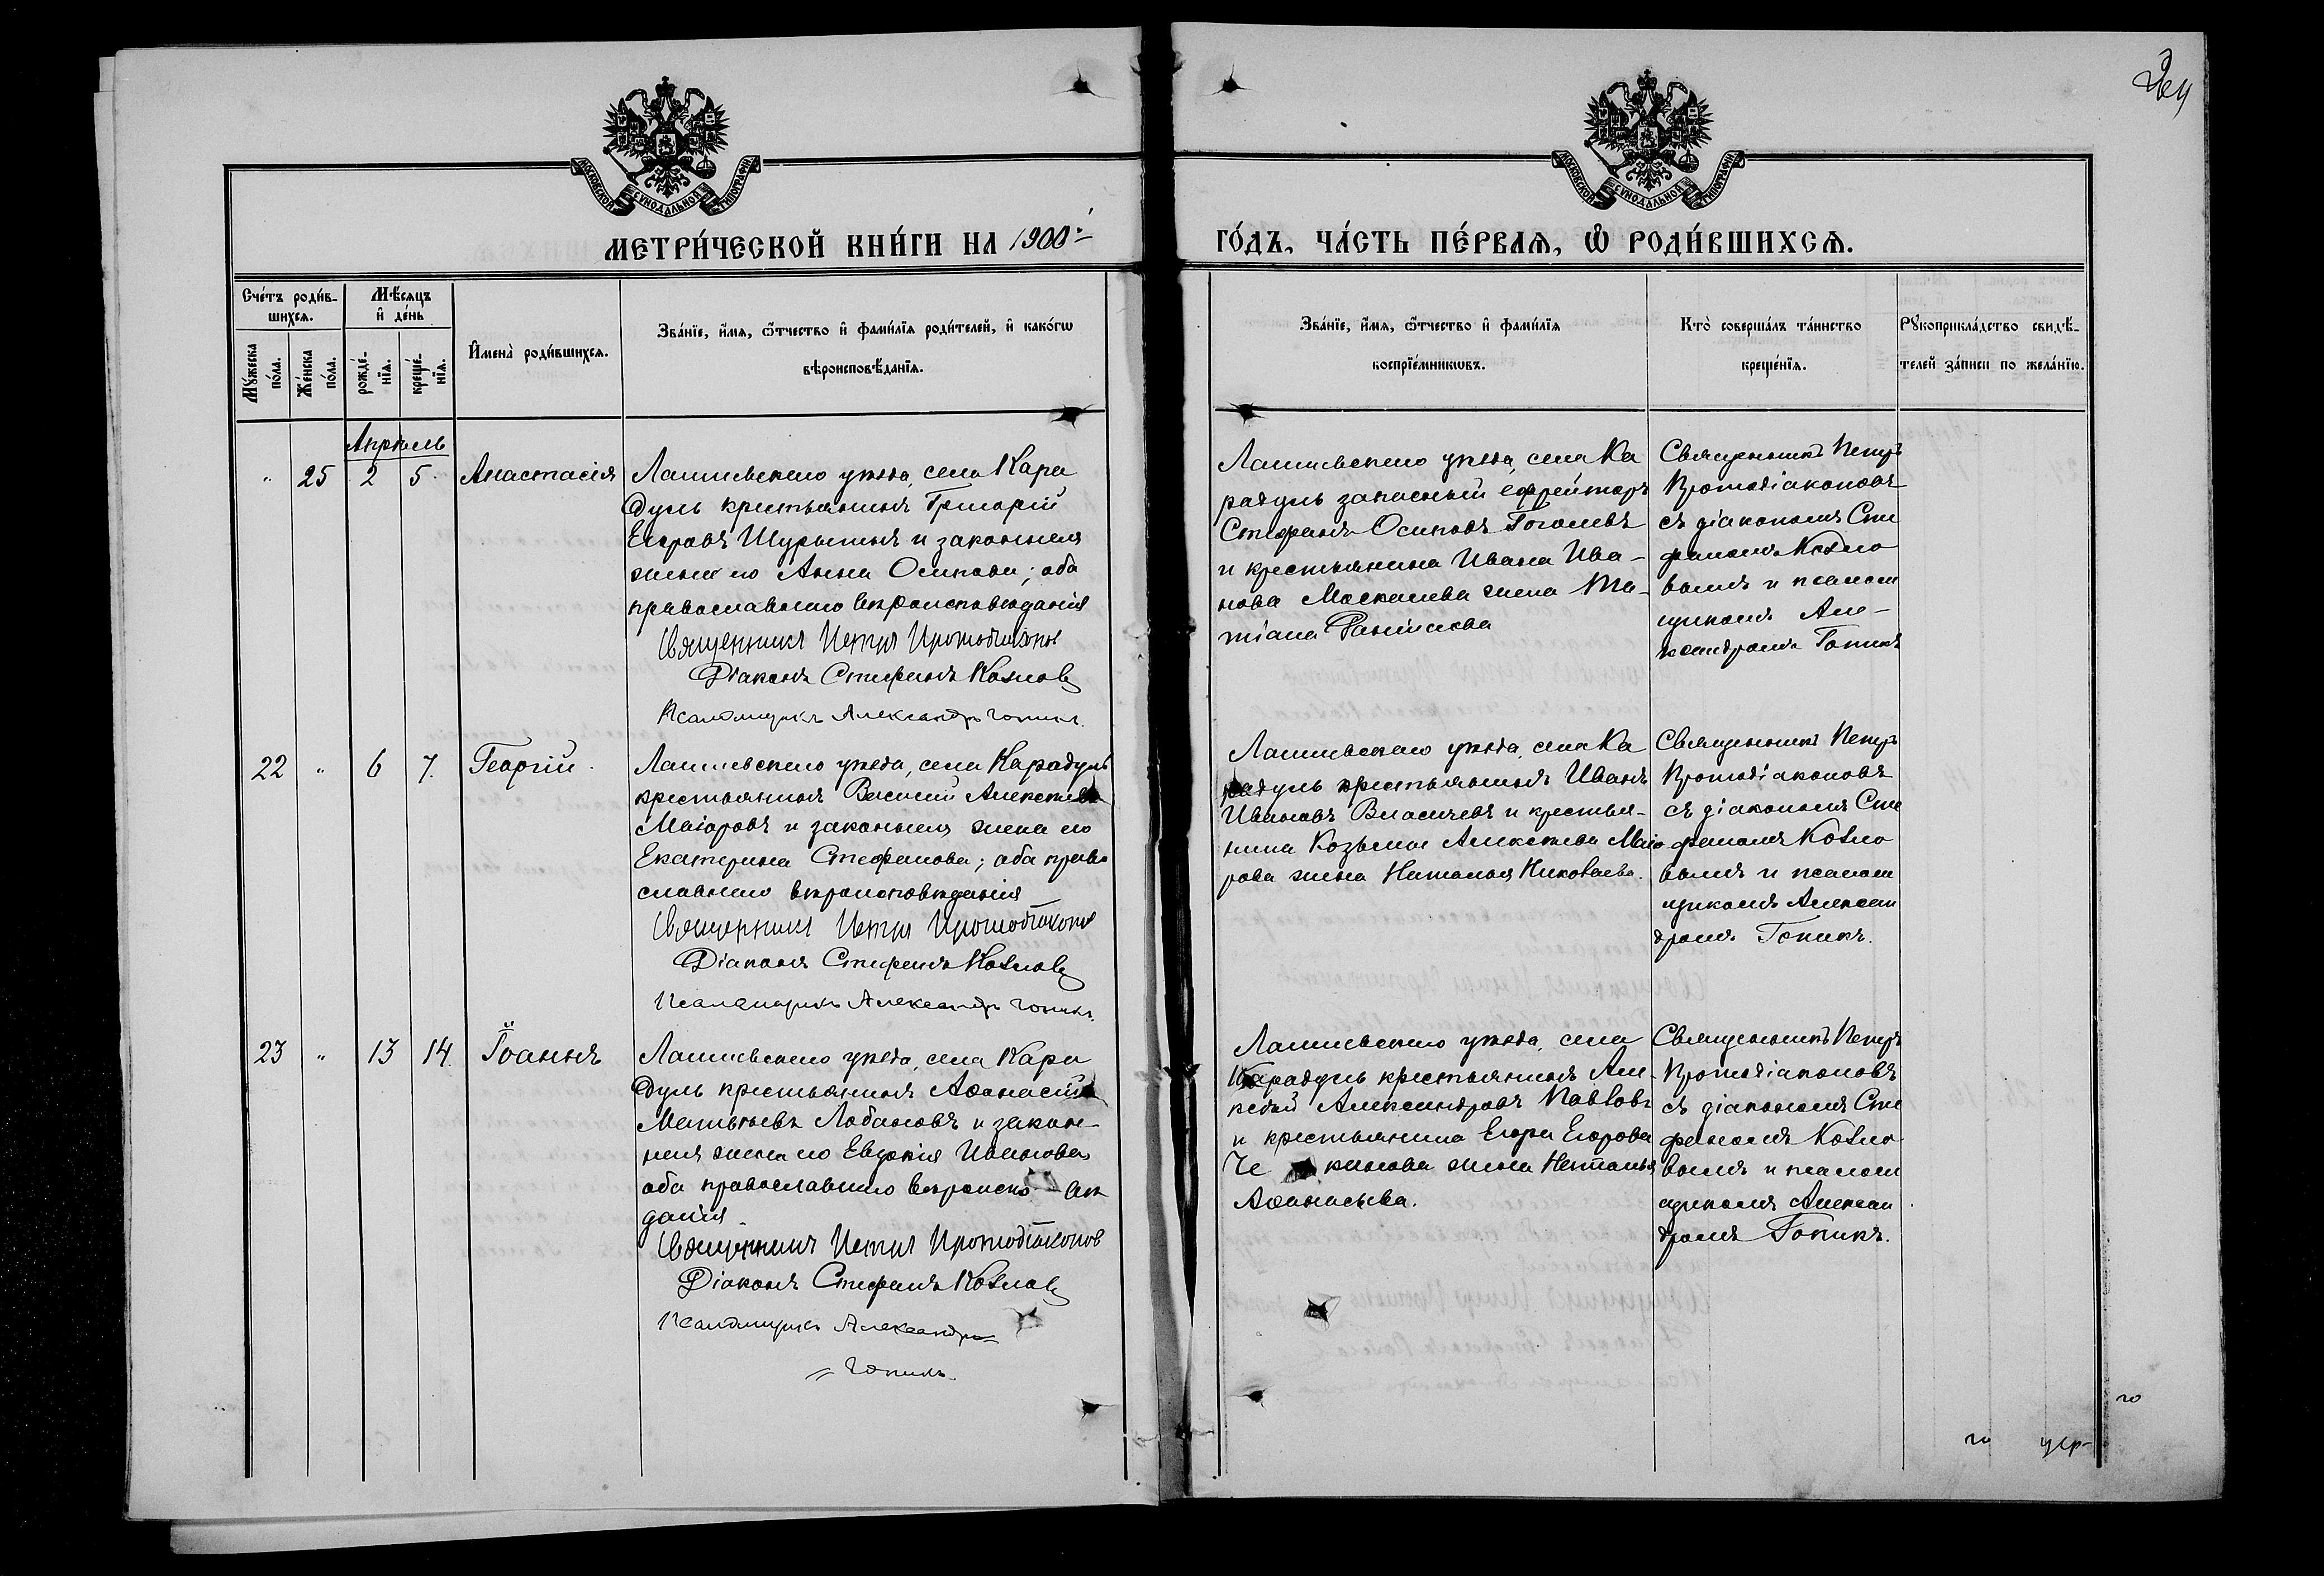 264
МОСКОВСКОЙ СУНОДАЛЬНОЙ ТИПОГРАФІИ
МОСКОВСКОЙ СУНОДАЛЬНОЙ ТИПОГРАФІИ
МЕТРИ́ЧЕСКОЙ КНИ́ГИ НА 1900й
ГО́ДЪ, ЧА́СТЬ ПЕ́РВАѦ, Ѡ РОДИ́ВШИХСѦ.
Сче́тъ роди́в-
шихсѧ.
Мꙋ́жеска по́ла.
Же́нска по́ла.
Мѣ́сѧцъ
и҆ де́нь
рожде́-нїѧ.
креще́-нїѧ.
И҆мена̀ роди́вшихсѧ.
Зва́нїе, и҆́мѧ, ѻ҆́тчество и҆ фами́лїѧ роди́телей, и҆ како́гѡ
вѣроисповѣ́данїѧ.
Зва́нїе, и҆́мѧ, ѻ҆́тчество и҆ фами́лїѧ
воспрїе́мникѡвъ.
Кто̀ соверша́лъ та́инство
креще́нїѧ.
Рꙋкоприкла́дство свидѣ́-
телей за́писи по жела́нїю.
Апрѣль
" 25 2 5. Анастасія
Лаишевскаго уѣзда, села Кара
дуль крестьянинъ Григорій
Егоровъ Шурыгинъ и законная
жена его Анна Осипова; оба
православнаго вѣроисповѣданія
Священникъ Петръ Протодіаконов
Діаконъ Стефанъ Козлов
Псаломщикъ Александръ Гопикъ.
Лаишевскаго уѣзда, села Ка
радуль запасный ефрейторъ
Стефанъ Осиповъ Гоголевъ
и крестьянина Ивана Ива-
нова Москалева жена Та-
тіана
Священникъ Петръ
Протодіаконовъ
съ діакономъ Сте
фаномъ Козло
вымъ и псалом
щикомъ Але-
ксандромъ Гопикъ
22 " 6 7. Георгій.
Лаишевскаго уѣзда, села Карадуль
крестьянинъ Василій Алексѣевъ
Маіоровъ и законная жена его
Екатерина Стефанова; оба право
славнаго вѣроисповѣданія
Священникъ Петръ Протодіаконов
Діаконъ Стефанъ Козлов
Псаломщикъ Александръ Гопикъ.
Лаишевскаго уѣзда, села Ка
радуль крестьянинъ Иванъ
Ивановъ Власичевъ и крестья-
нина Козьмы Алексѣева Маіо
рова жена Наталья Николаева.
Священникъ Петръ
Протодіаконовъ
съ діакономъ Сте
фаномъ Козло
вымъ и псалом
щикомъ Алексан
дромъ Гопикъ.
23 " 13 14. Іоаннъ
Лаишевскаго уѣзда, села Кара
дуль крестьянинъ Аѳанасій
Матвѣевъ Лобановъ и закон-
ная жена его Евдокія Иванова
оба православнаго вѣроиспо вѣ
данія.
Священникъ Петръ Протодіаконов
Діаконъ Стефанъ Козлов
Псаломщикъ Александръ
Гопикъ.
Лаишевскаго уѣзда, села
Карадуль крестьянинъ Але-
ксѣй Александровъ Павловъ
и крестьянина Егора Егорова
Че кинова жена Наталья
Аѳанасьева.
Священникъ Петръ
Протодіаконовъ
съ діакономъ Сте
фаномъ Козло
вымъ и псалом
щикомъ Алексан
дромъ Гопикъ.